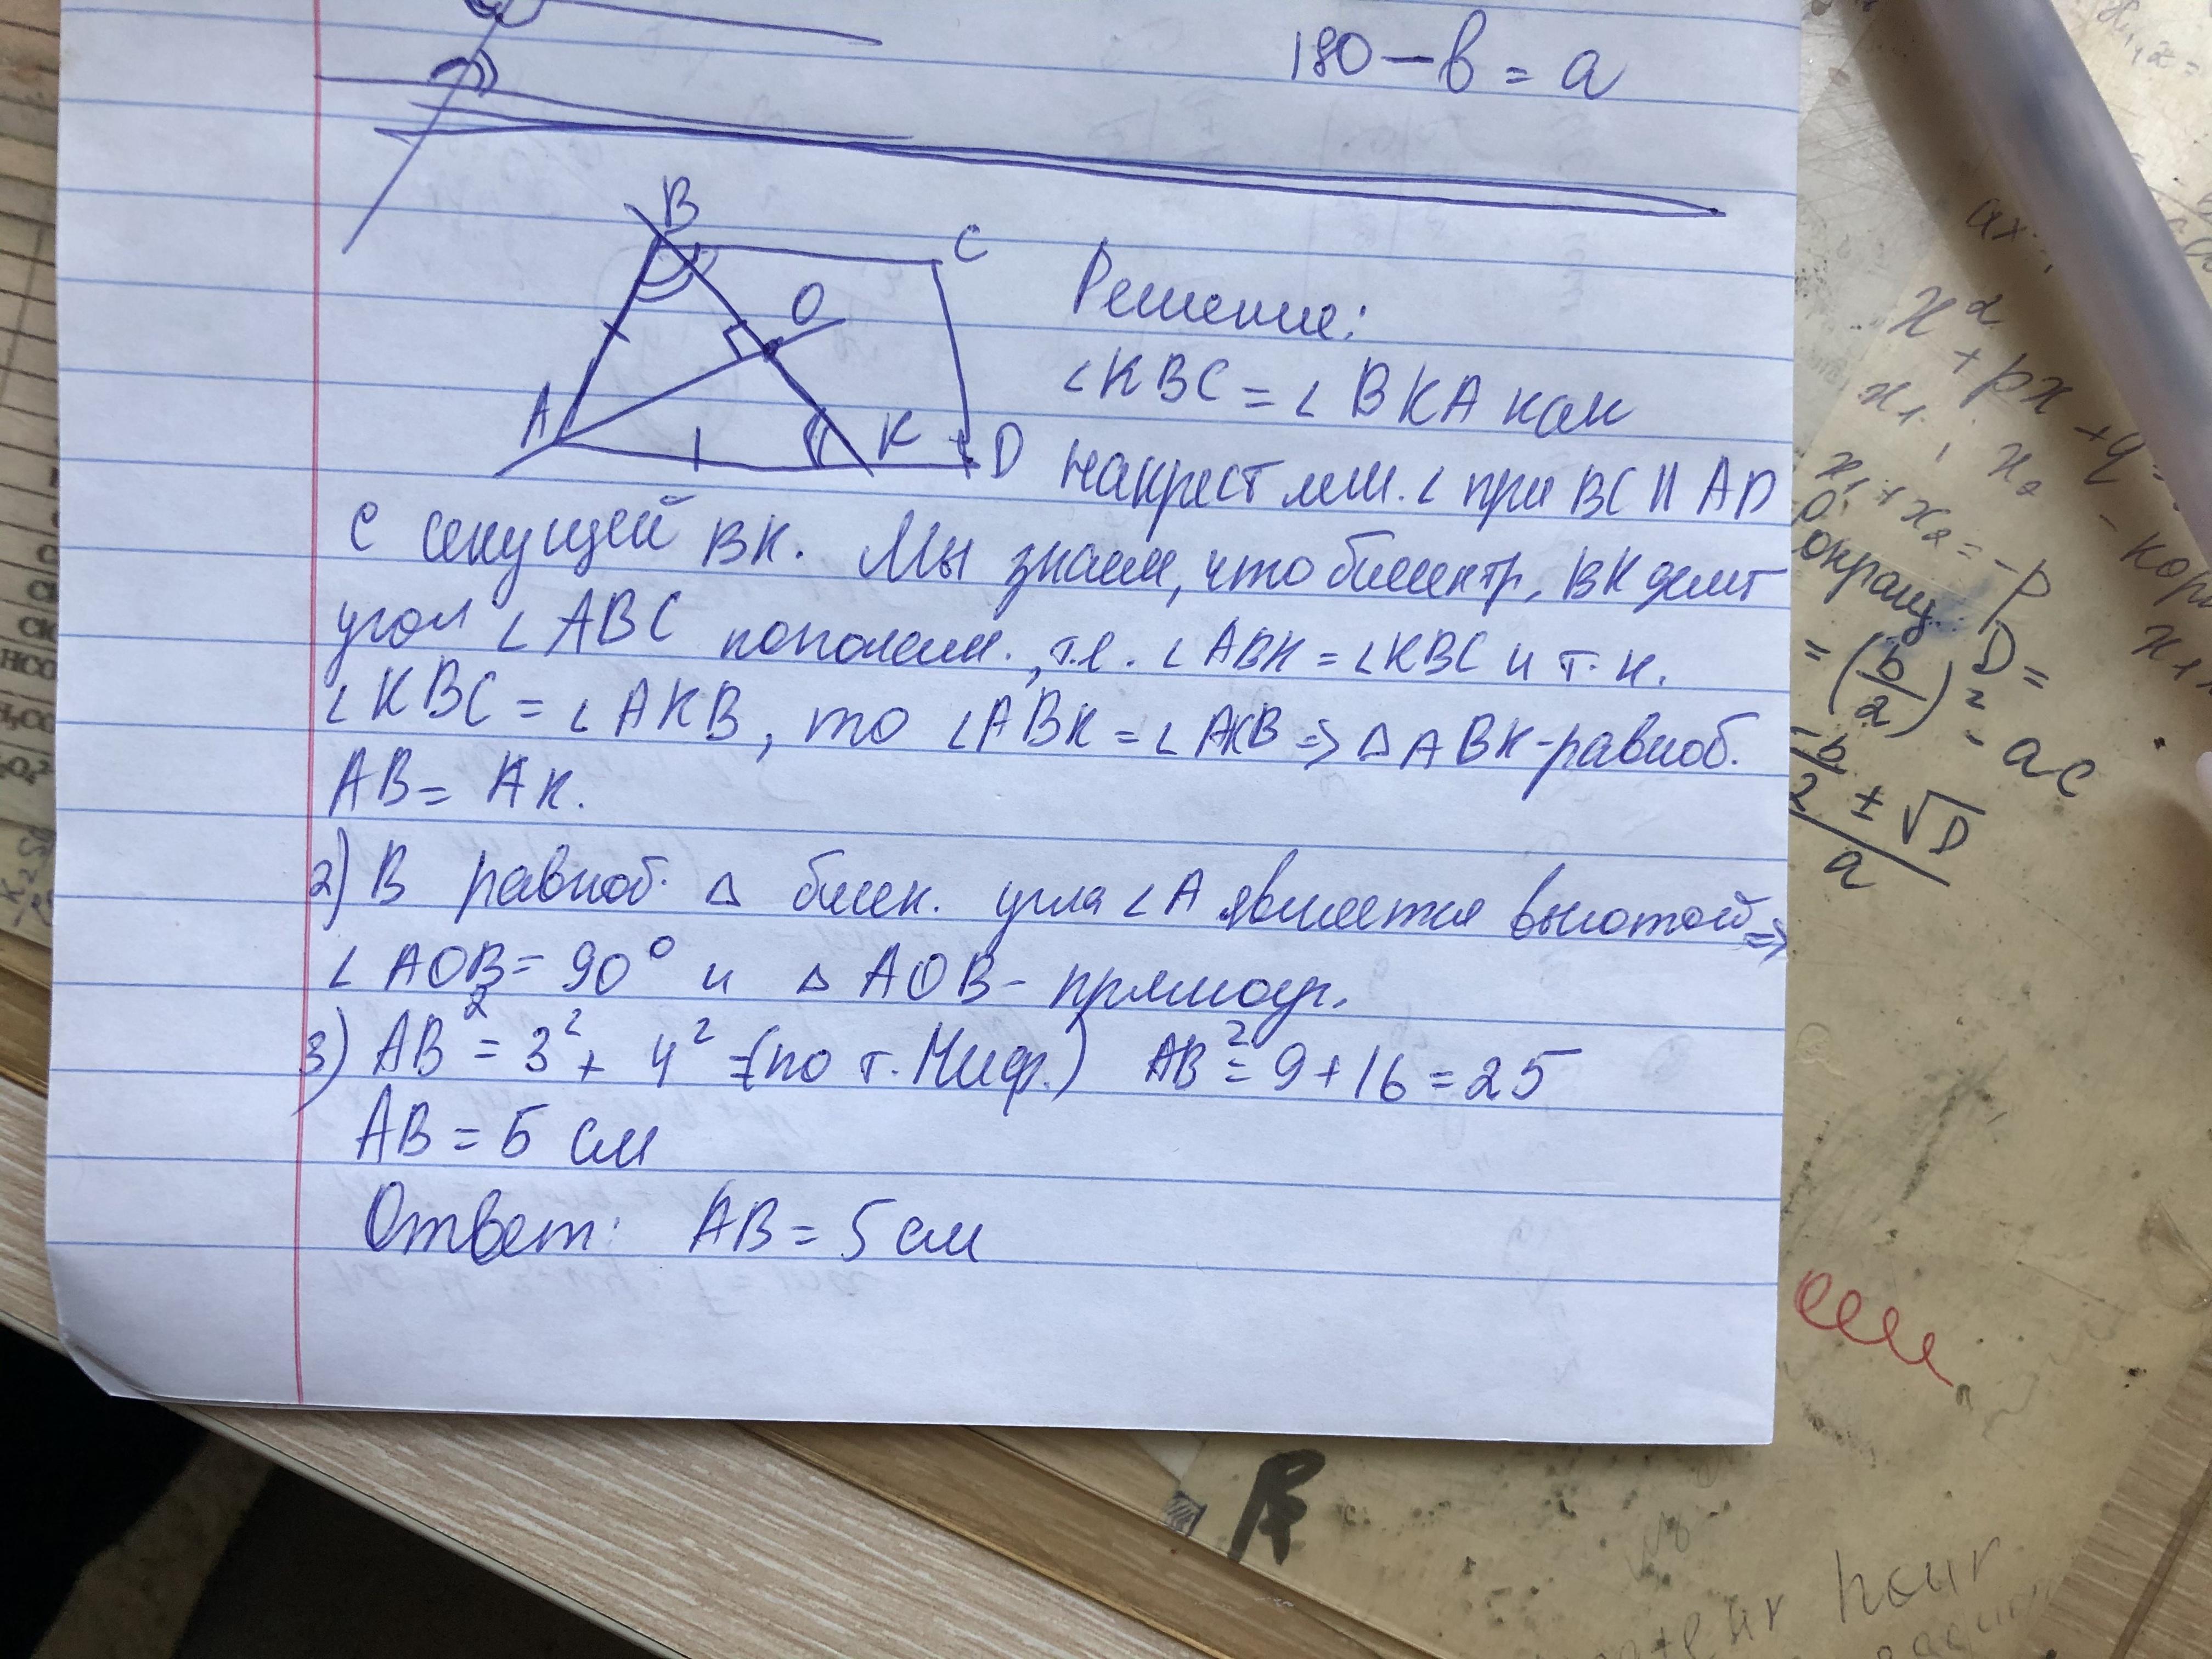 180 - в = а
B
C
O
A
K
D
Решение:
∠KBC = ∠BKA как
накрест леж. ∠ при BC || AD
с секущей BK. Мы знаем, что биссектр. BK делит
угол ∠ABC пополам., т.е. ∠ABK = ∠KBC и т.к.
∠KBC = ∠AKB, то ∠ABK = ∠AKB => △ABK-равноб.
AB = AK.
2) В равноб. △ биссек. угла ∠A является высотой =>
∠AOB = 90° и △AOB - прямоуг.
3) AB² = 3² + 4² =(по т. Пиф.) AB² = 9 + 16 = 25
AB = 5 см
Ответ: AB = 5 см
ax
x²
+ px + q
x₁; x₂ - кор
x₁ + x₂ = -p
D =
= (b/2)² - ac
-b/2 ± √D
a
hour